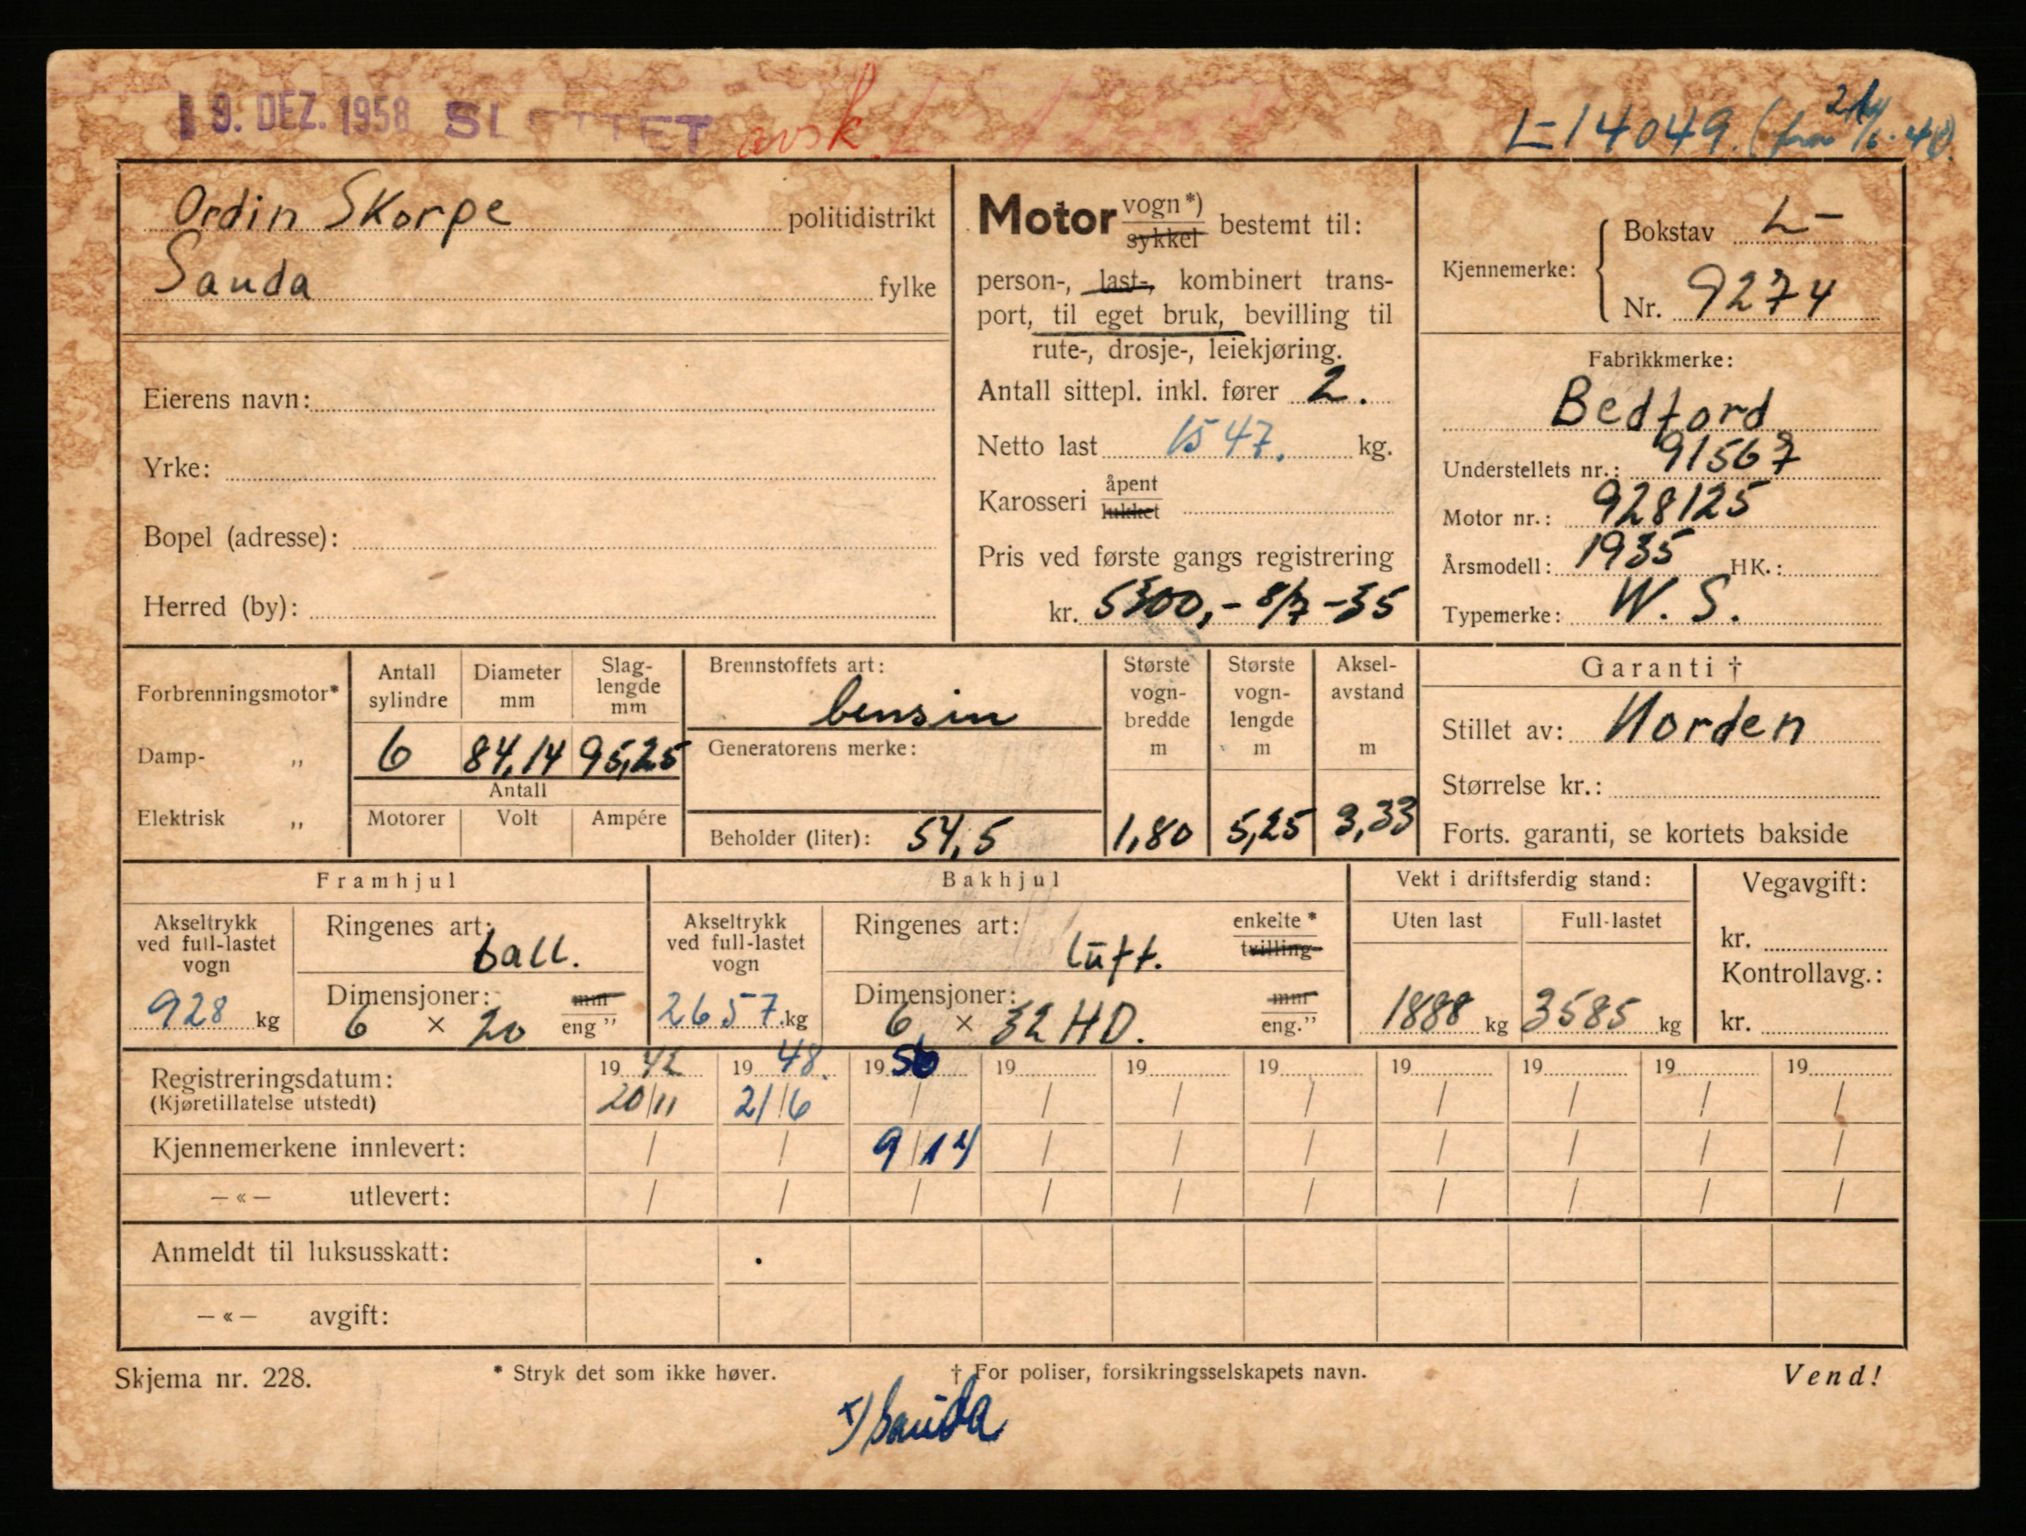 9. DEZ. 1958 SLETTET avsk. L-14049. (fra 21/6-48).
Ordin Skorpe politidistrikt
Sauda fylke
Eierens navn:
Yrke:
Bopel (adresse):
Herred (by):
Motor vogn*) sykkel bestemt til:
person-, last-, kombinert trans-
port, til eget bruk, bevilling til
rute-, drosje-, leiekjøring.
Antall sittepl. inkl. fører 2.
Netto last 1547. kg.
Karosseri åpent lukket
Pris ved første gangs registrering
kr. 5300,- 8/7-35
Kjennemerke: Bokstav L-
Nr. 9274
Fabrikkmerke:
Bedford
Understellets nr.: 91567
Motor nr.: 928125
Årsmodell: 1935 HK.:
Typemerke: W. S.
Forbrenningsmotor*
Damp- „
Elektrisk „
Antall sylindre
Diameter mm
Slag-
lengde
mm
6 84,14 95,25
Antall
Motorer Volt Ampére
Brennstoffets art:
bensin
Generatorens merke:
Beholder (liter): 54,5
Største vogn-bredde m
1,80
Største vogn-lengde m
5,25
Aksel-avstand m
3,33
Garanti †
Stillet av: Norden
Størrelse kr.:
Forts. garanti, se kortets bakside
Framhjul
Akseltrykk
ved full-lastet
vogn
928 kg
Ringenes art:
ball.
Dimensjoner:
6 × 20 mm eng "
Bakhjul
Akseltrykk
ved full-lastet
vogn
2657. kg
Ringenes art: enkelte * tvilling
luft.
Dimensjoner:
6 × 32 HD. mm eng."
Vekt i driftsferdig stand:
Uten last Full-lastet
1888 kg 3585 kg
Vegavgift:
kr.
Kontrollavg.:
kr.
Registreringsdatum: 19 42 19 48. 19 56 19 19 19 19 19 19 19
(Kjøretillatelse utstedt) 20/11 21/6 / / / / / / / /
Kjennemerkene innlevert: / / 9/14 / / / / / / /
—«— utlevert: / / / / / / / / / /
Anmeldt til luksusskatt:
—«— avgift:
Skjema nr. 228. * Stryk det som ikke høver. † For poliser, forsikringsselskapets navn. Vend!
x) Sauda